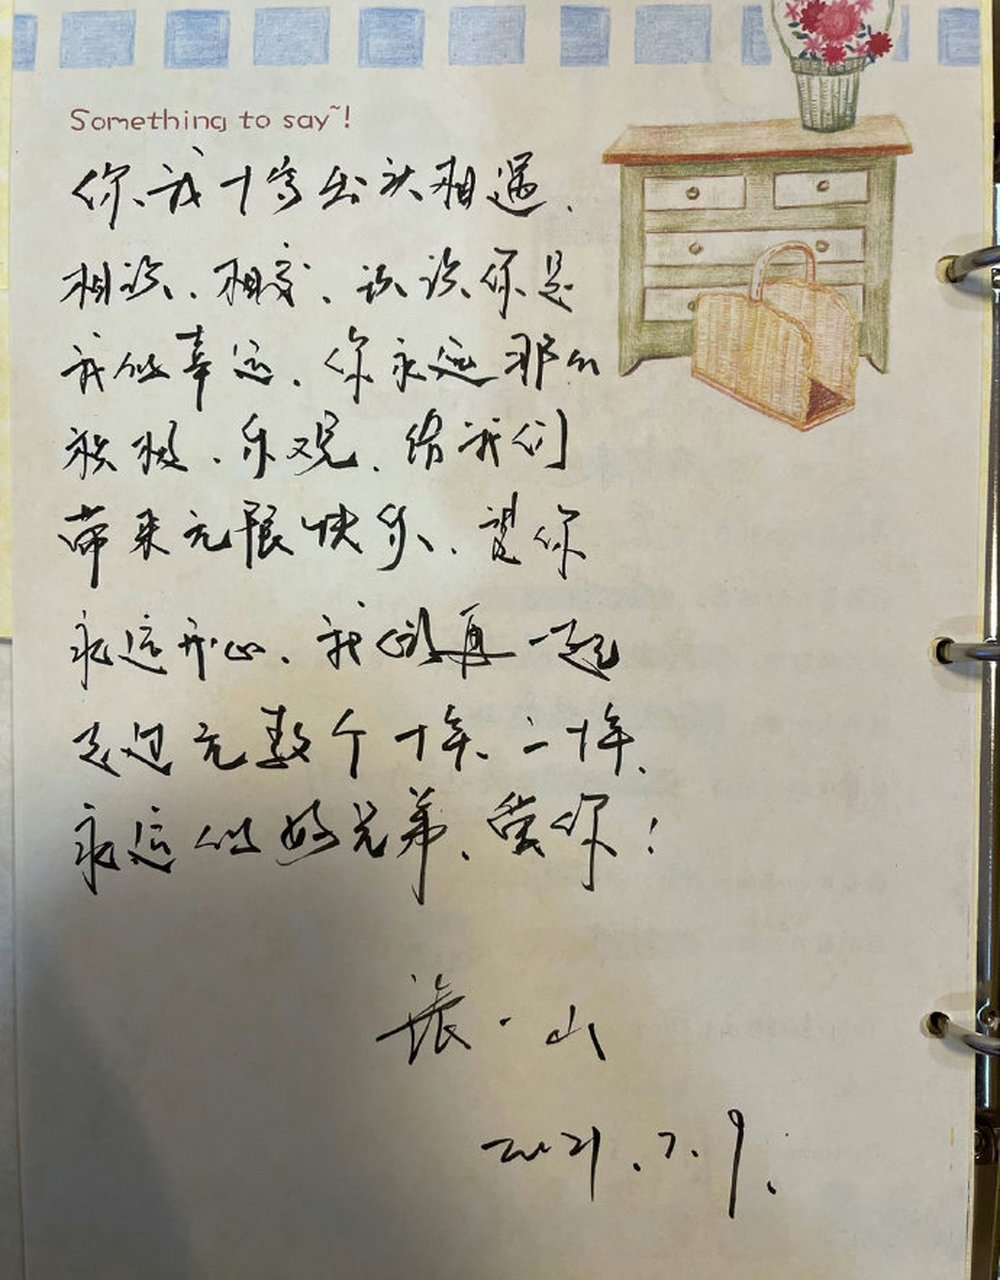 Something to say~!
你我十字出头相遇、
相识、相交、认识你是
我的幸运、你永远那么
积极、乐观、给我们
带来无限快乐、望你
永远开心、我们再一起
走过无数个十年、二十年、
永远的好兄弟、爱你!
张·山
2021.7.9.